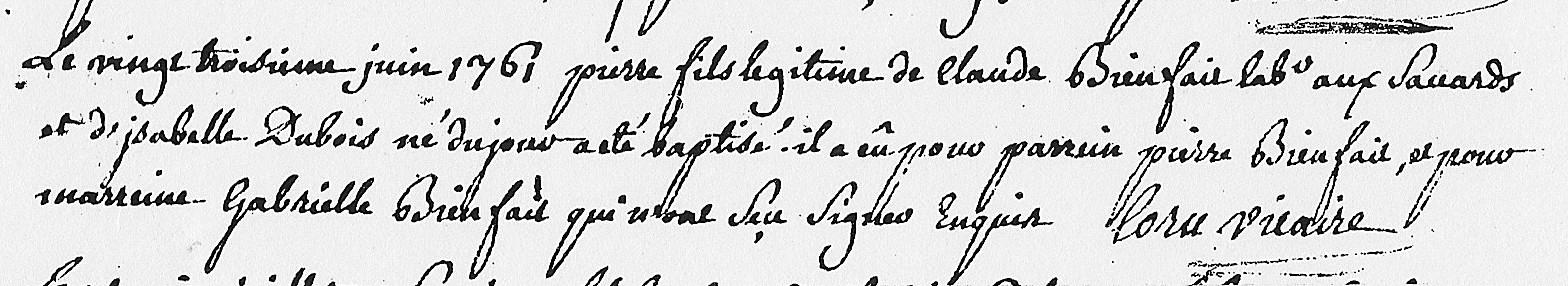 Le vingt troisieme juin 1761 pierre fils legitime de Claude Bienfait labr aux Sauards
et d'jsabelle Dubois né du jour a eté baptisé. il a eû pour parrein pierre Bienfait, et pour
marreine Gabrielle Bienfait qui n'ont Sçu Signer Enquis vicaire